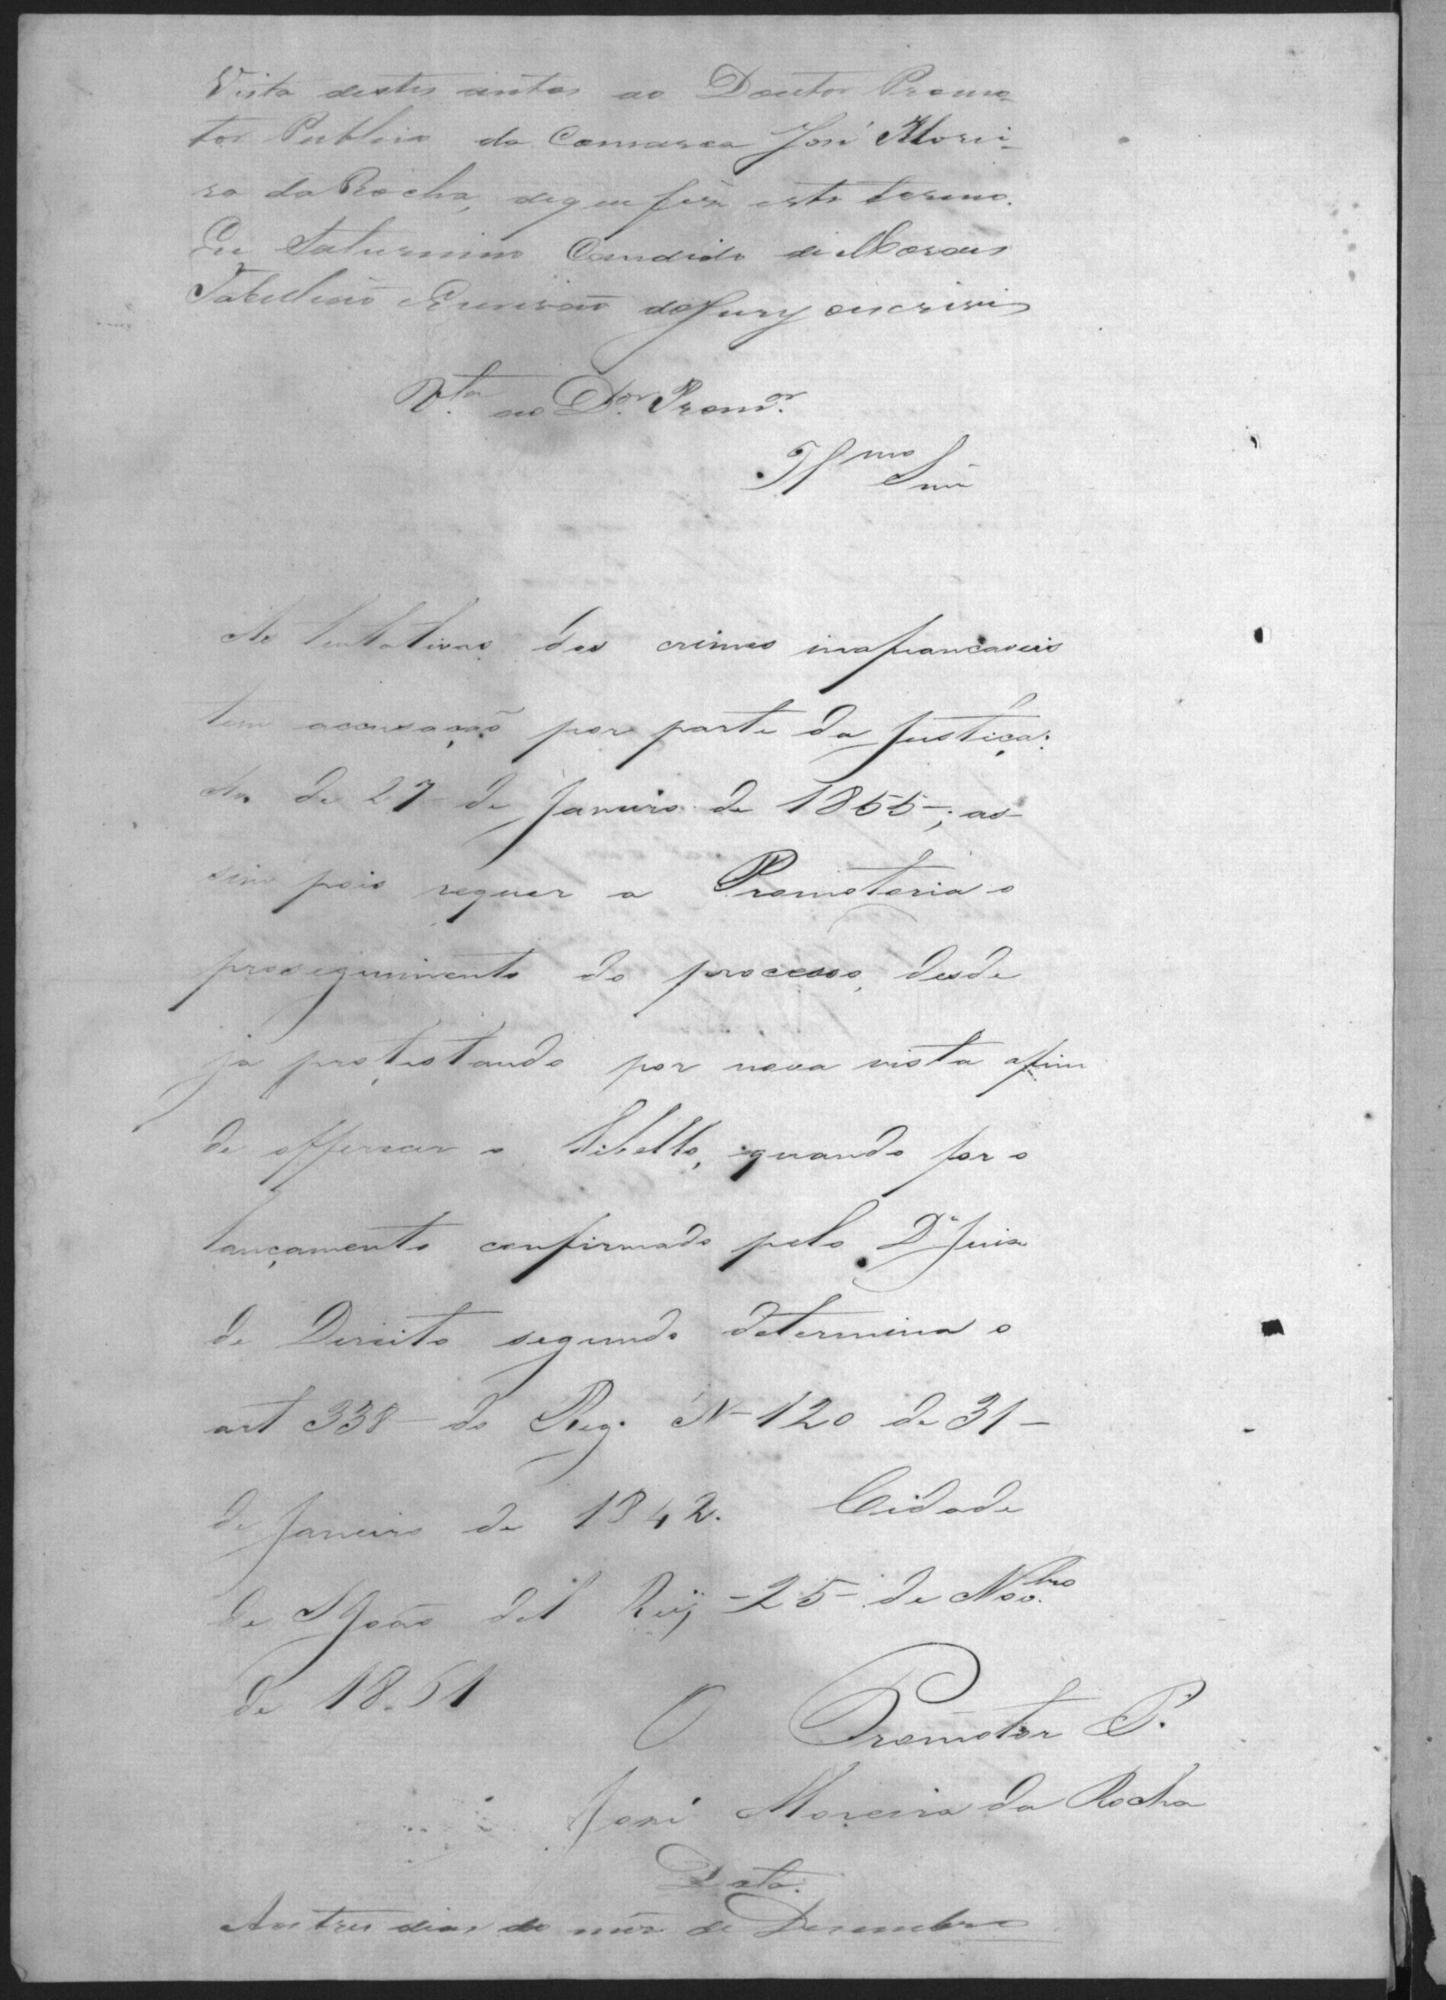 Vista destes autos ao Doutor Promo-
tor Publico da Comarca José Morei-
ra da Rocha, de que fiz este termo.
Eu Saturnino Candido de Moraes
Tabellião e Escrivão do Jury o escrevi
V.ta ao D.or Prom.or
Ill.mo Snr
As tentativas dos crimes inafiançaveis
tem accusação por parte da Justiça:
Av. de 27 de Janeiro de 1855-; as-
sim pois requer a Promotoria o
proseguimento do processo, desde
já protestando por nova vista afim
de offerecer o libello, quando for o
lançamento confirmado pelo Dr Juiz
de Direito segundo determina o
art 338- do Reg. N- 120 de 31-
de Janeiro de 1842. Cidade
de S João del Rey -25- de Nov.bro
de 1861
O Promotor P.
José Moreira da Rocha
Data.
Aos tres dias do mez de Desembro